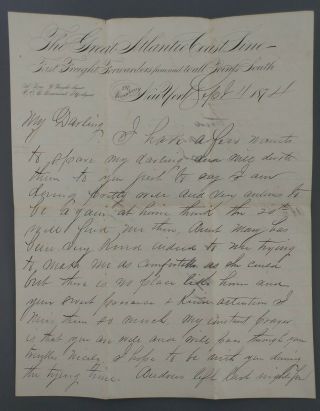 The Great Atlantic Coast Line
First Freight Forwarders from and to all Points South
New York Sept 11 1874
My Darling
I have a few minutes
to spare my darling and will devote
them to you just to say I am
doing pretty well and very anxious to
be again at home think the 20th
will find me there, Aunt Mary has
been very kind indeed to me trying
to make me as comfortable as she could
but there is no place like home and
your sweet presence & kind attention I
miss them so much. my constant prayer
is that you are well and will pass through your
trouble nicely I hope to be with you during
the trying time. Andrew left last night for